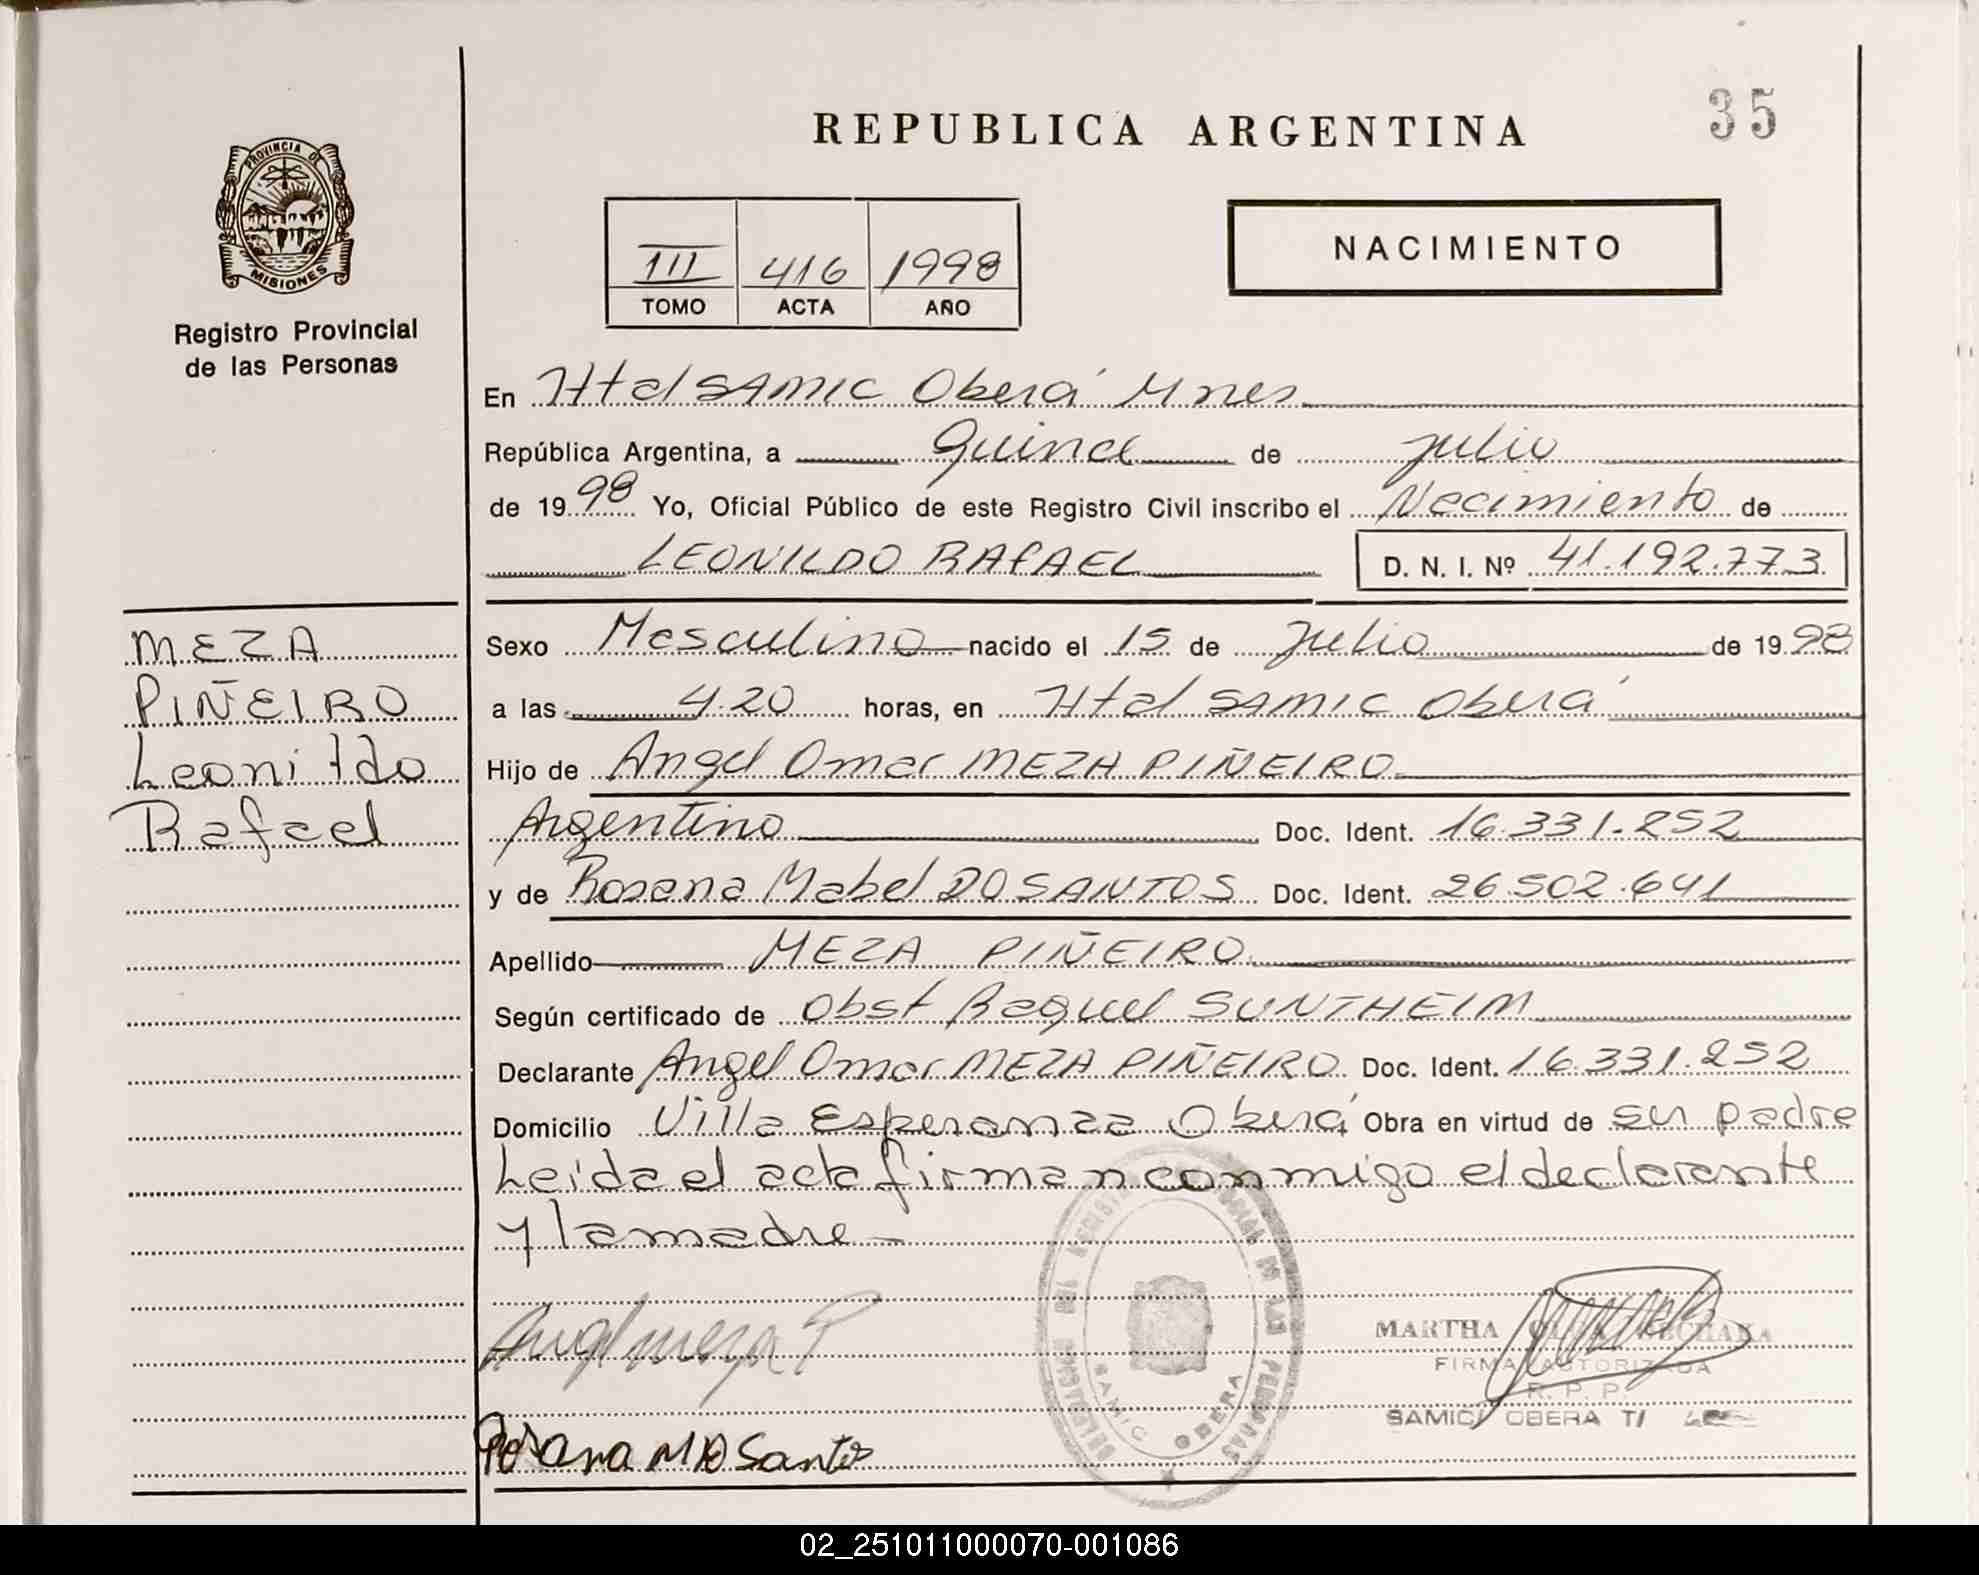 REPUBLICA ARGENTINA
35
PROVINCIA DE
MISIONES
Registro Provincial
de las Personas
III 416 1998
TOMO ACTA AÑO
NACIMIENTO
En Htal SAMIC Oberá Mnes
República Argentina, a Quince de Julio
de 1998 Yo, Oficial Público de este Registro Civil inscribo el Nacimiento de
LEONILDO RAFAEL D. N. I. Nº 41.192.773
MEZA
PIÑEIRO
Leonildo
Rafael
Sexo Masculino nacido el 15 de Julio de 1998
a las 4.20 horas, en Htal SAMIC Oberá
Hijo de Angel Omar MEZA PIÑEIRO
Argentino Doc. Ident. 16.331.252
y de Rosana Mabel DO SANTOS Doc. Ident. 26.502.641
Apellido MEZA PIÑEIRO
Según certificado de Obst Raquel SUNTHEIM
Declarante Angel Omar MEZA PIÑEIRO Doc. Ident. 16.331.252
Domicilio Villa Esperanza Oberá Obra en virtud de su padre
Leida el acta firman conmigo el declarante
y la madre
Angel Meza P
Rosana M D Santos
SAMIC OBERA
MARTHA
FIRMA AUTORIZADA
R. P. P.
SAMIC OBERA
02_251011000070-001086